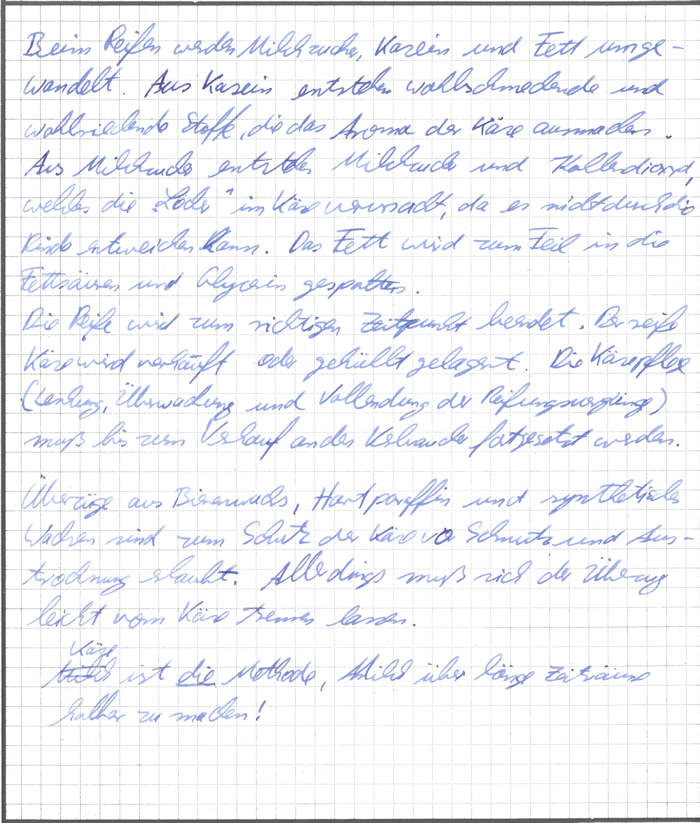 Beim Reifen werden Milchzucker, Kasein und Fett umge-
wandelt. Aus Kasein entstehen wohlschmeckende und
wohlriechende Stoffe, die das Aroma der Käse ausmachen.
Aus Milchzucker entstehen Milchzucker und Kohlendioxyd,
welches die "Löcher" im Käse verursacht, da es nicht durch die
Rinde entweichen kann. Das Fett wird zum Teil in die
Fettsäuren und Glycerin gespalten.
Die Reife wird zum richtigen Zeitpunkt beendet. Der reife
Käse wird verkauft oder gekühlt gelagert. Die Käsepflege
(Lenkung, Überwachung und Vollendung der Reifungsvorgänge)
muß bis zum Verkauf an den Verbraucher fortgesetzt werden.
Überzüge aus Bienenwachs, Hartparaffin und synthetisches
Wachsen sind zum Schutz der Käse vor Schmutz und Aus-
trocknung erlaubt. Allerdings muß sich der Überzug
leicht vom Käse trennen lassen.
Käse
ist die Methode, Milch über lange Zeiträume
haltbar zu machen!